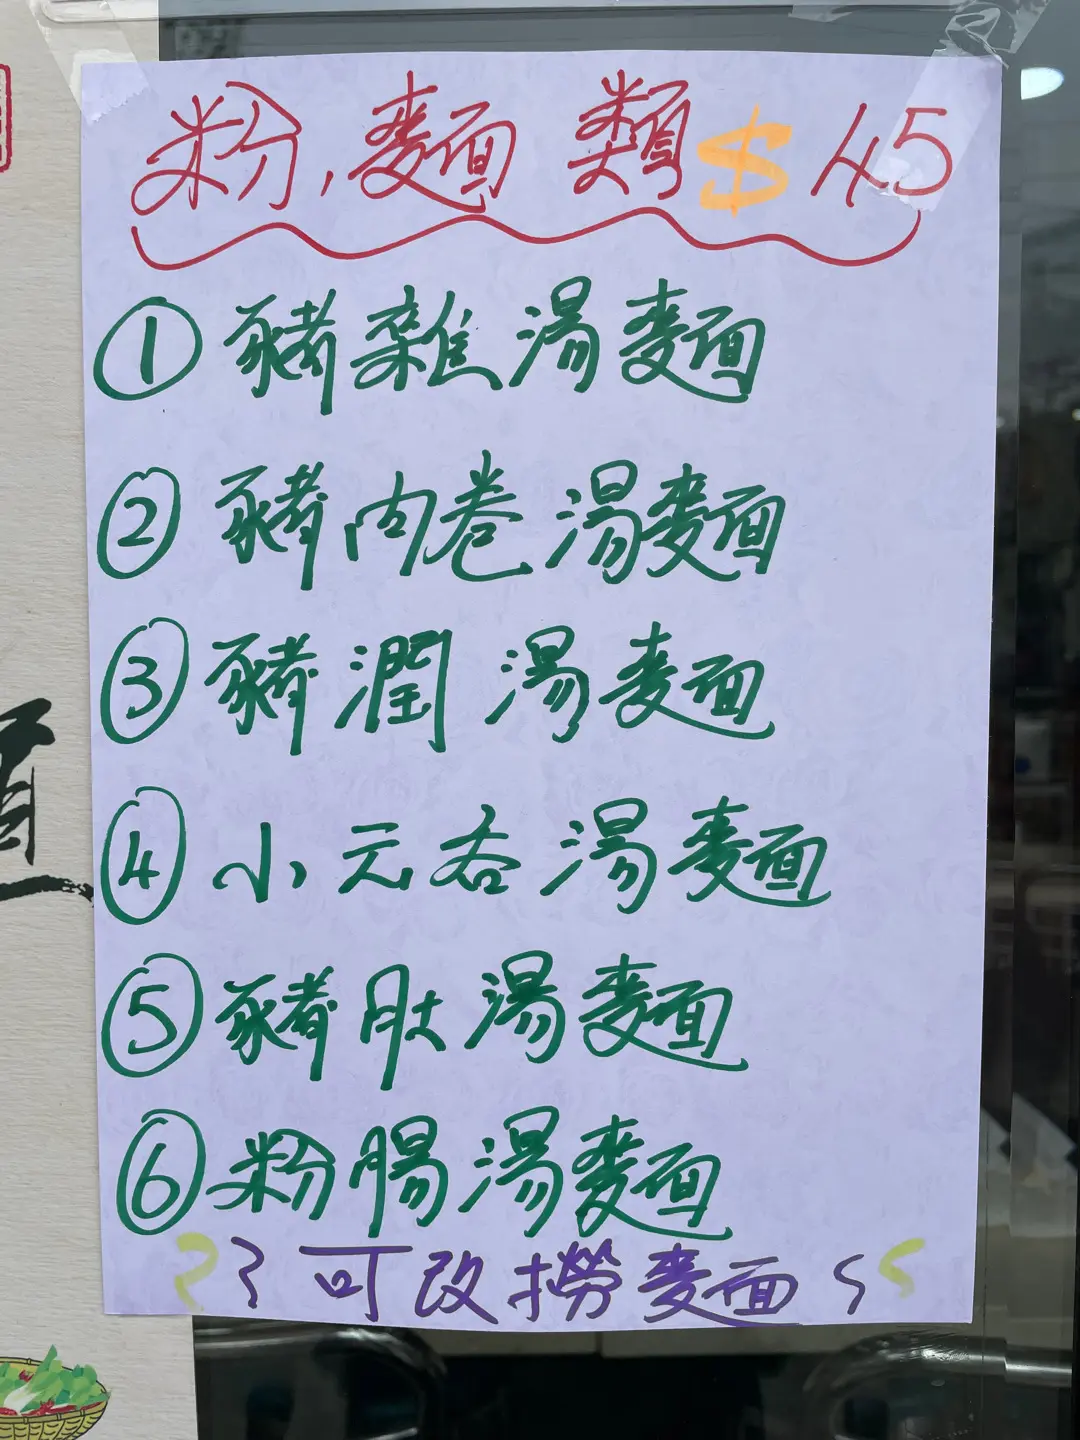 粉,麵 類 $45
① 豬雜湯麵
② 豬肉卷湯麵
③ 豬潤湯麵
④ 小元吞湯麵
⑤ 豬肚湯麵
⑥ 粉腸湯麵
可改撈麵